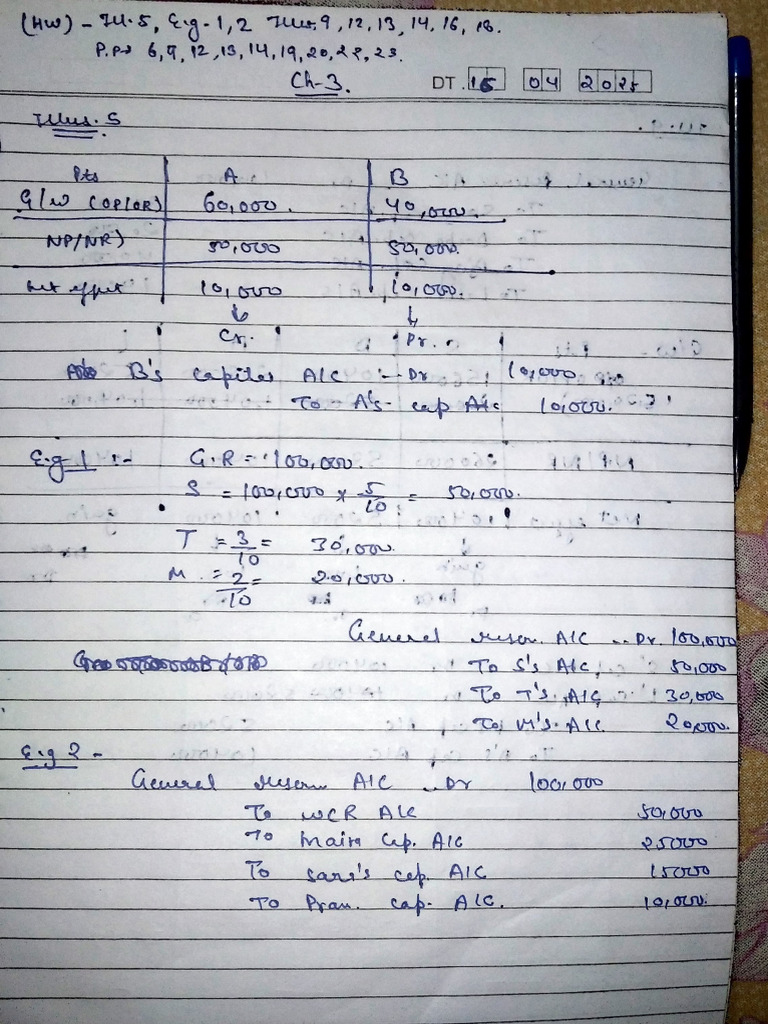 (HW) - Ill. 5, E.g - 1, 2 Illus. 9, 12, 13, 14, 16, 18.
P.P.s 6, 9, 12, 13, 14, 19, 20, 22, 23.
Ch-3. DT. 15 04 2025
Illus. 5
Pts A B
G/W (OP/OR) 60,000. 40,000.
NP/NR) 50,000 50,000.
Net effect 10,000 10,000.
Cr. Dr.
B's capital A/C ... Dr 10,000
To A's cap A/c 10,000.
E.g 1 :- G.R = 100,000.
S = 100,000 × 5/10 = 50,000.
T = 3/10 = 30,000.
M. = 2/10 = 20,000.
General reser. A/C ... Dr. 100,000
To S's A/C 50,000
To T's A/C 30,000
To M's A/C 20,000.
E.g 2 -
General reserv A/C .. Dr 100,000
To WCR A/C 50,000
To Maira Cap. A/C 25000
To Sara's cap. A/C 15000
To Pran. cap. A/C. 10,000.